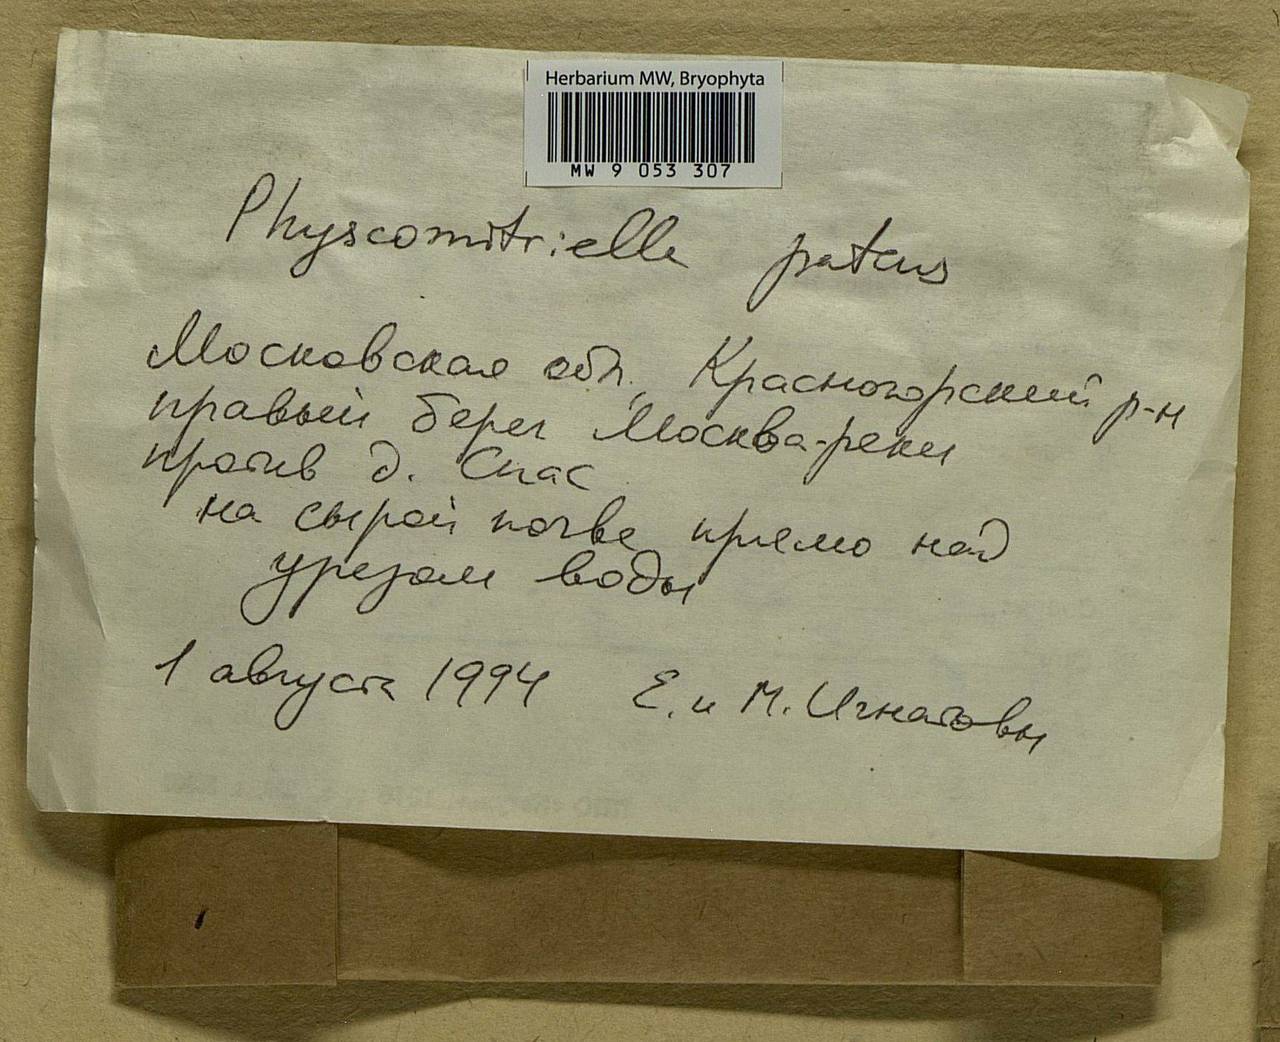 Herbarium MW, Bryophyta
MW 9 053 307
Physcomitriella patens
Московская обл., Красногорский р-н
правый берег Москва-реки
против д. Спас
на сырой почве прямо над
урезом воды
1 августа 1994 Е. и М. Игнатовы